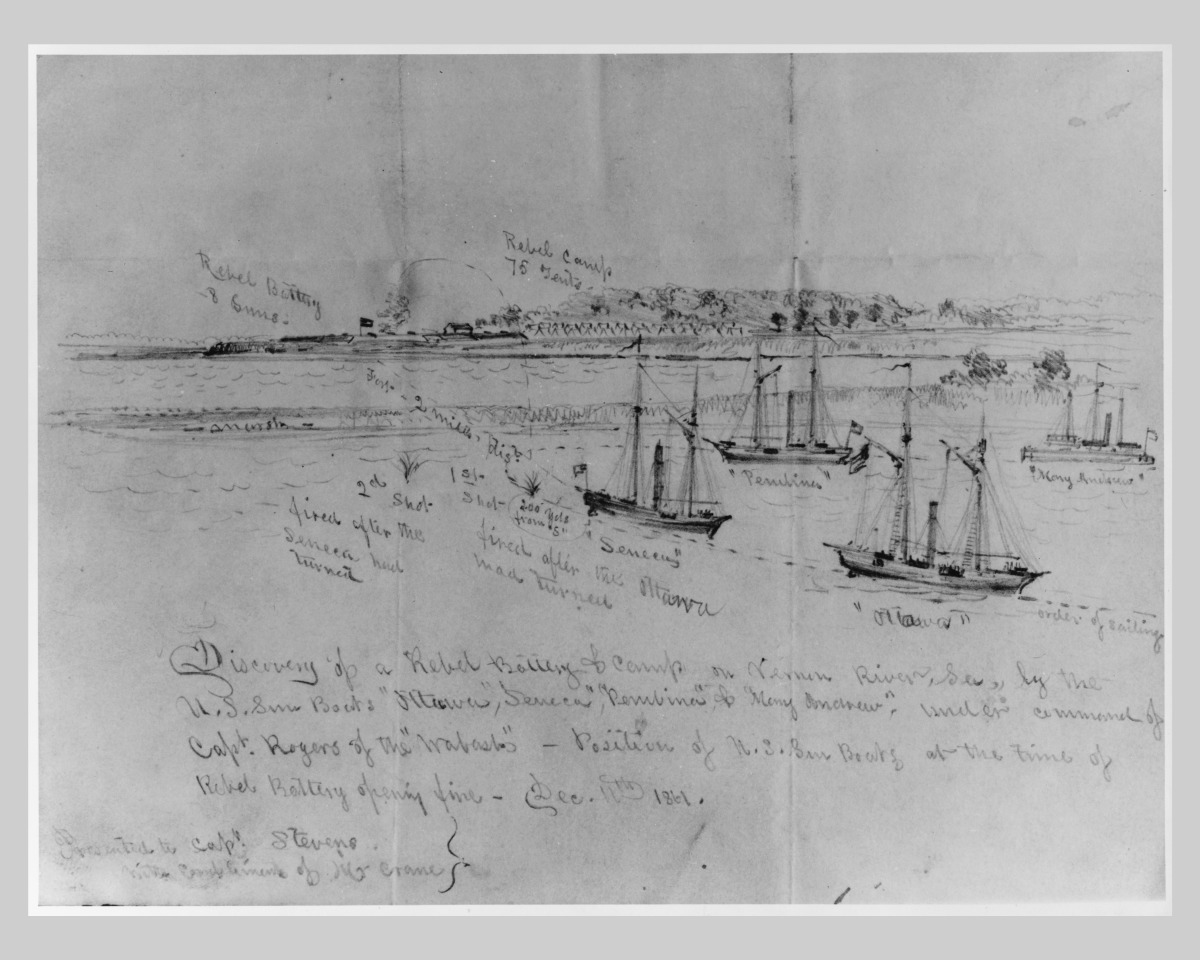 Rebel Battery
8 Guns.
Rebel Camp
75 Tents.
Fort 2 miles Dist.
Marsh
2d
Shot
fired after the
Seneca had
turned
1st
Shot
200 Yds
from "S"
fired after the Ottawa
had turned
"Seneca"
"Pembina"
"Mary Andrew"
"Ottawa"
order of sailing
Discovery of a Rebel Battery & Camp on Vernon River, Ga., by the
U.S. Gun Boats "Ottawa", "Seneca", "Pembina" & "Mary Andrew". under command of
Capt. Rogers of the "Wabash" – Position of U.S. Gun Boats at the time of
Rebel Battery opening fire – Dec. 1861.
Presented to Capt. Stevens.
with Compliments of Mr Crane